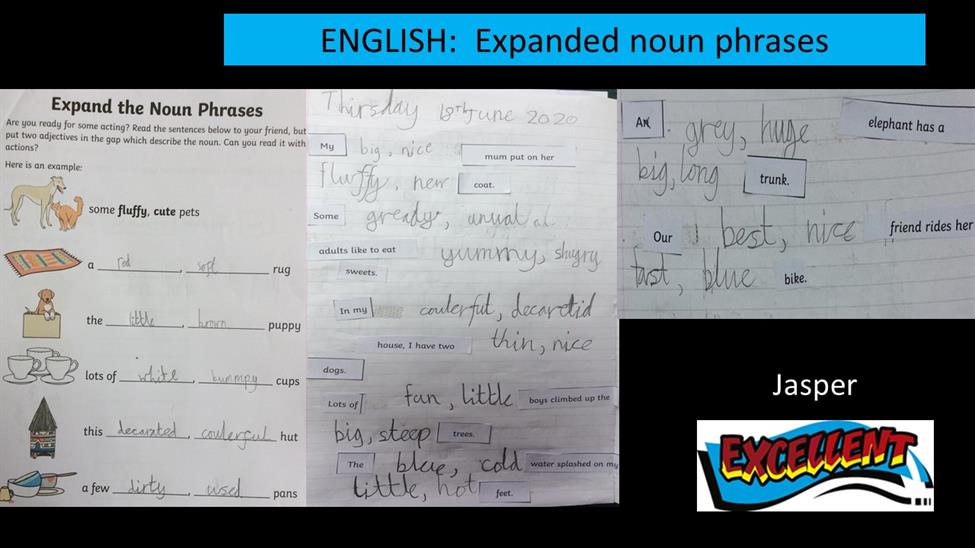 ENGLISH: Expanded noun phrases
Expand the Noun Phrases
Are you ready for some acting? Read the sentences below to your friend, but
put two adjectives in the gap which describe the noun. Can you read it with
actions?
Here is an example:
some fluffy, cute pets
a red, soft rug
the little, brown puppy
lots of white, bummpy cups
this decarated, coulerful hut
a few dirty, used pans
Thirsday 18th June 2020
My big, nice mum put on her
fluffy, new coat.
Some gready, unual al
adults like to eat yummy, shugry
sweets.
In my coulerful, decaretid
house, I have two thin, nice
dogs.
Lots of fun, little boys climbed up the
big, steep trees.
The blue, cold water splashed on my
little, hot feet.
An grey, huge elephant has a
big, long trunk.
Our best, nice friend rides her
fast, blue bike.
Jasper
EXCELLENT